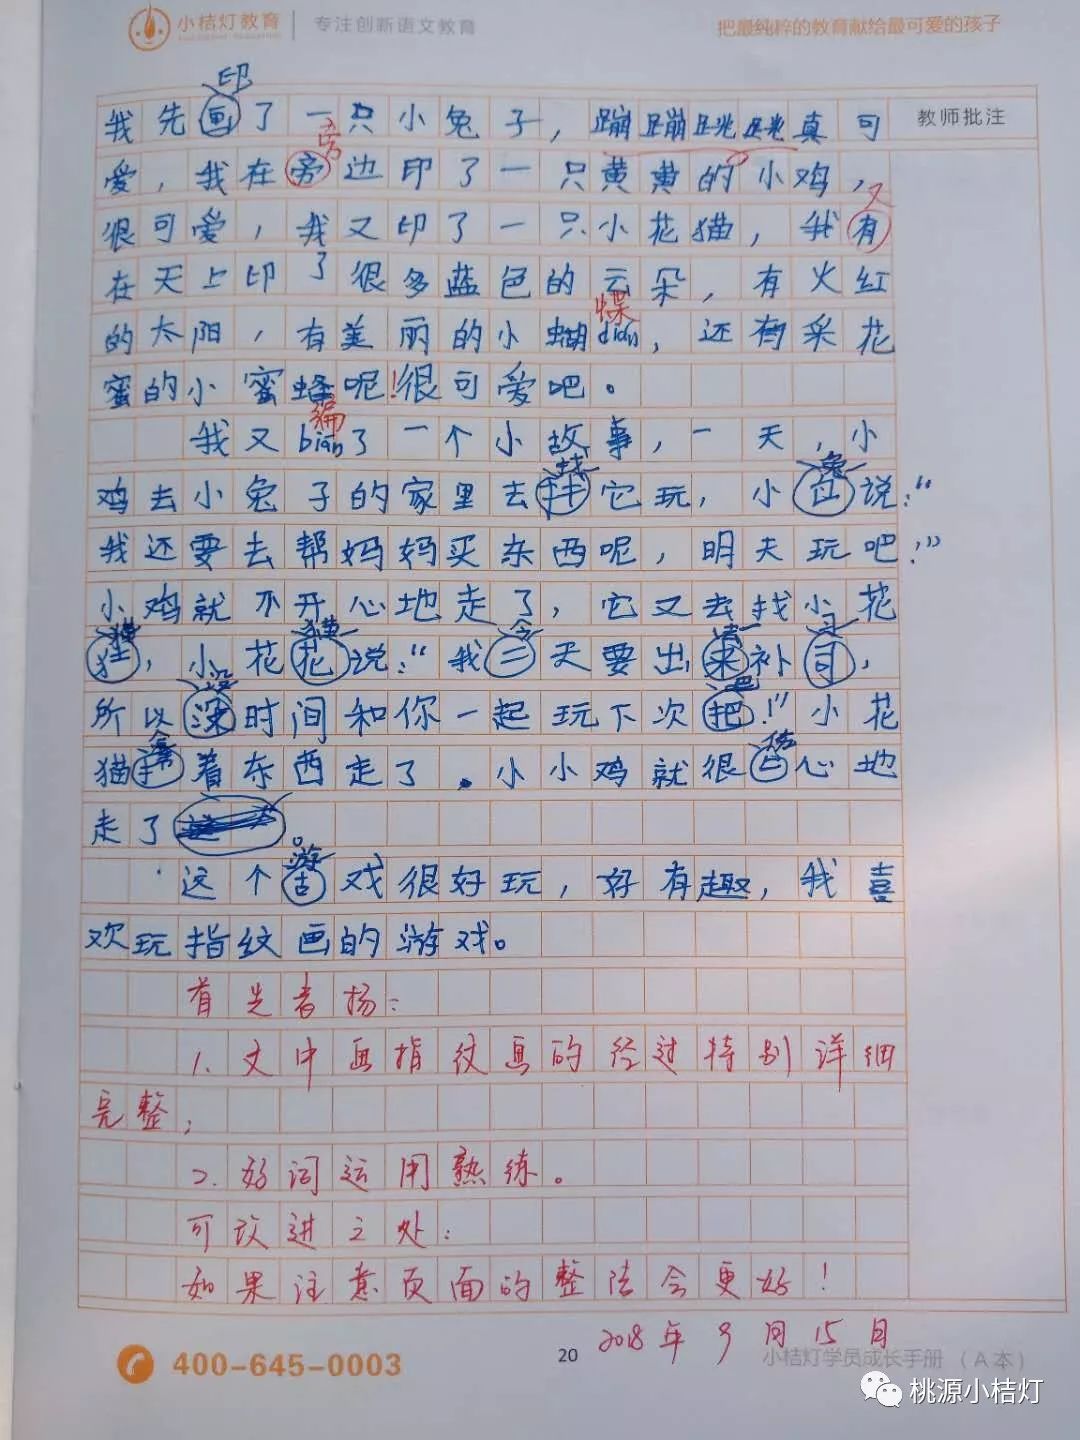 小桔灯教育 专注创新语文教育 把最纯粹的教育献给最可爱的孩子
教师批注
印
我先画了一只小兔子，蹦蹦跳跳真可
旁
爱，我在旁边印了一只黄黄的小鸡，
又
很可爱，我又印了一只小花猫，我有
在天上印了很多蓝色的云朵，有火红
蝶
的太阳，有美丽的小蝴dian，还有采花
蜜的小蜜蜂呢！很可爱吧。
编
我又bian了一个小故事，一天，小
找 兔
鸡去小兔子的家里去它玩，小说：“
我还要去帮妈妈买东西呢，明天玩吧！”
小鸡就不开心地走了，它又去找小花
猫 猫 今 请 习
，小花花说：“我三天要出来补司，
没 吧
所以没时间和你一起玩下次把！”小花
拿
猫着东西走了。小小鸡就很心地
走了。
游
这个古戏很好玩，好有趣，我喜
欢玩指纹画的游戏。
首先表扬：
1.文中画指纹画的经过特别详细
完整；
2.好词运用熟练。
可改进之处：
如果注意页面的整洁会更好！
2018年9月15日
400-645-0003 20 小桔灯学员成长手册（A本）
桃源小桔灯